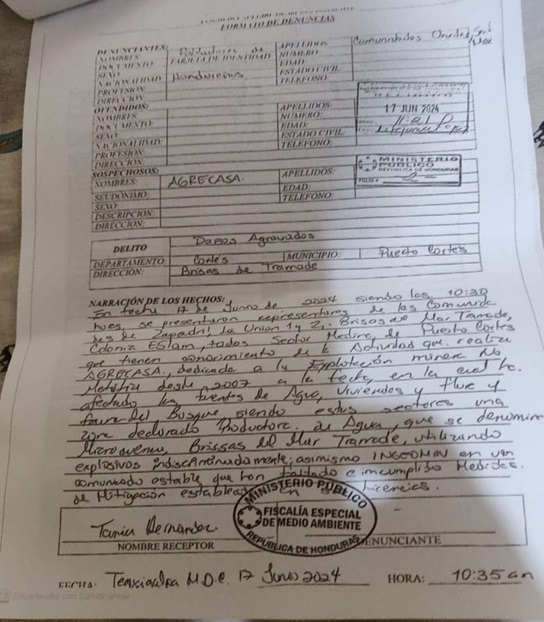 FORMATO DE DENUNCIAS
DENUNCIANTES:
NOMBRES Pobladores de APELLIDOS Comunidades
DOCUMENTO TARJETA DE IDENTIDAD NUMERO
SEXO EDAD
NACIONALIDAD Hondureños ESTADO CIVIL
PROFESION TELEFONO
DIRECCION
OFENDIDOS:
NOMBRES APELLIDOS
DOCUMENTO: NUMERO: 17 JUN 2024
SEXO: EDAD:
NACIONALIDAD ESTADO CIVIL
PROFESION: TELEFONO:
DIRECCION:
SOSPECHOSOS: MINISTERIO PUBLICO
REPUBLICA DE HONDURAS
NOMBRES: AGRECASA APELLIDOS:
SEUDONIMO: EDAD:
SEXO: TELEFONO:
DESCRIPCION:
DIRECCION:
DELITO Daños Agravados
DEPARTAMENTO: Cortés MUNICIPIO: Puerto Cortés
DIRECCION: Brisas de Tramade
NARRACIÓN DE LOS HECHOS:
En fecha 17 de Junio de 2024 siendo las 10:30
se presentaron representantes de las Comunida
des de Zapadril, la Union 1 y 2, Brisas del Mar Tramade,
Colonia ESlam, todos Sector Medina, de Puerto Cortes
que tienen conocimiento de la Actividad que realiza
AGRECASA, dedicada a la Explotación minera No
Metálica desde 2007 a la fecha, en la cual ha
afectado las fuentes de Agua, Viviendas y flue y
fauna del Bosque, siendo estos sectores una
zona declarada Productora de Agua, que se denomina
Microcuenca, Brissas del Mar Tramade, utilizando
explosivos indiscriminadamente; asimismo INGEOMIN en un
comunicado estable que han faltado e incumplido Medidas
de Mitigación Licencias.
Tania Hernandez
NOMBRE RECEPTOR
MINISTERIO PUBLICO
FISCALÍA ESPECIAL
DE MEDIO AMBIENTE
REPUBLICA DE HONDURAS
DENUNCIANTE
FECHA: M.D.C. 17 Junio 2024 HORA: 10:35 am